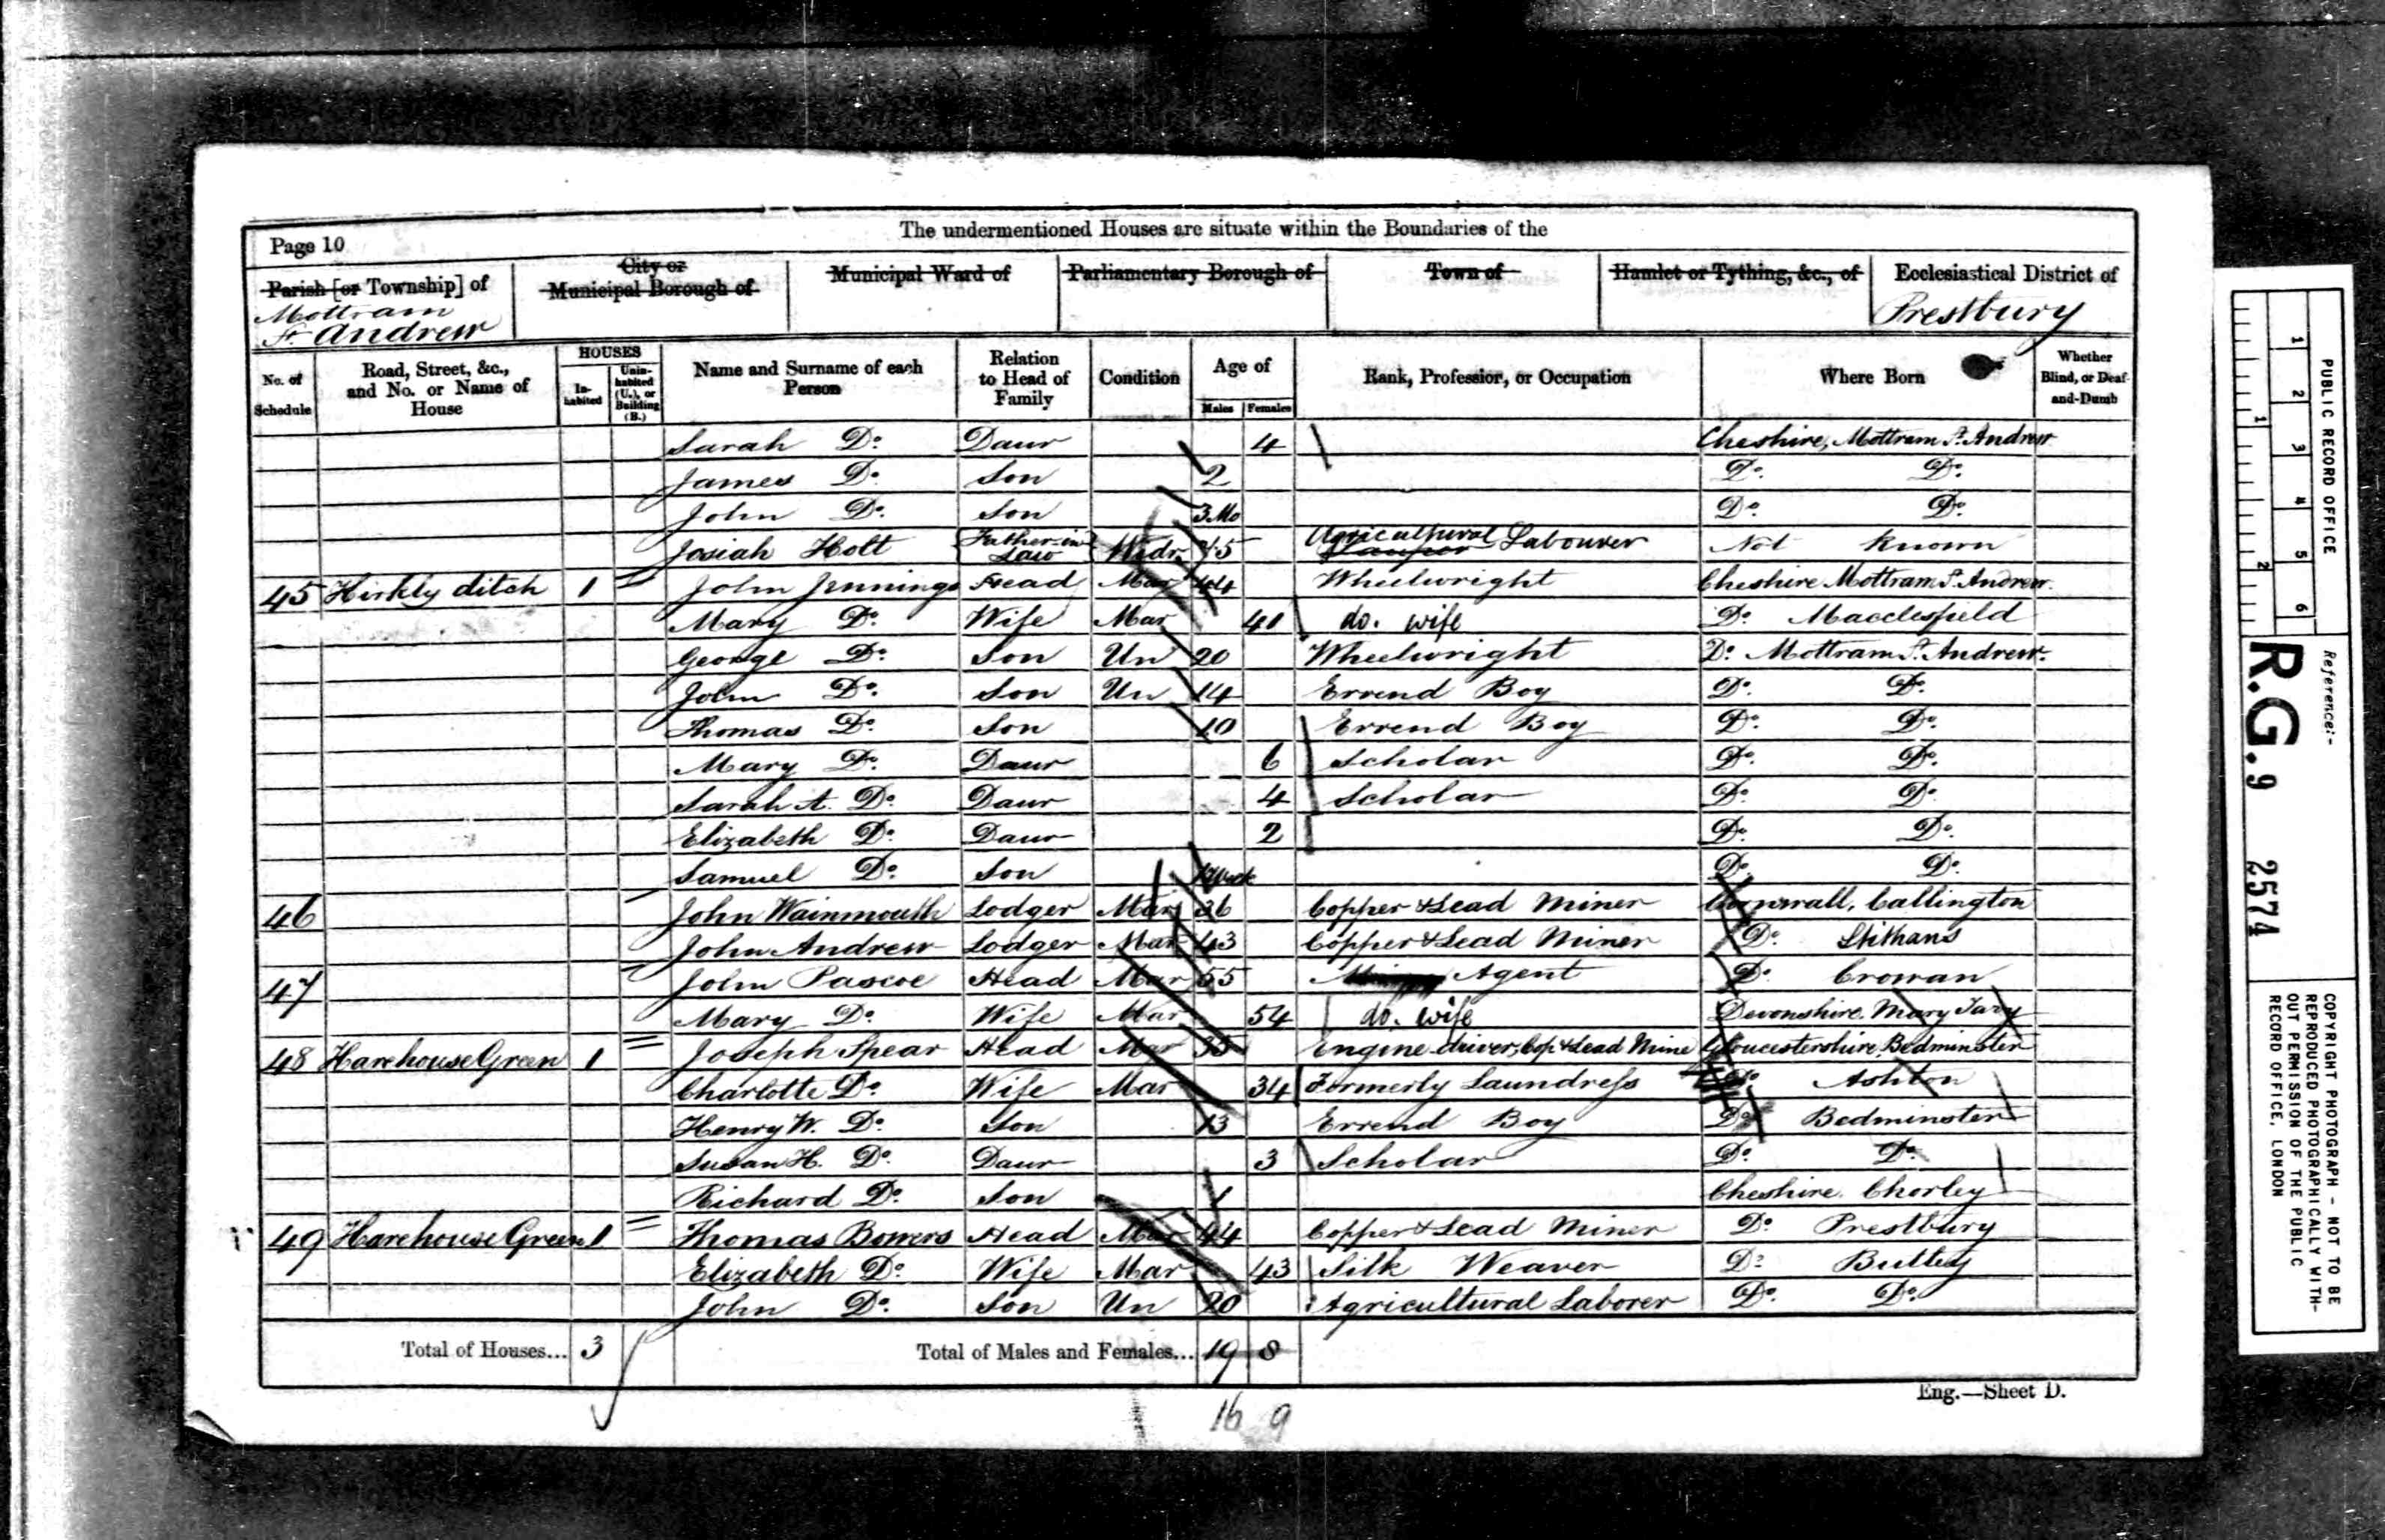 The undermentioned Houses are situate within the Boundaries of the
Page 10
Parish [or Township] of
Mottram
St. Andrew
City or
Municipal Borough of
Municipal Ward of
Parliamentary Borough of
Town of
Hamlet or Tything, &c., of
Ecclesiastical District of
Prestbury
No. of Schedule
Road, Street, &c., and No. or Name of House
HOUSES
In-habited
Unin-habited (U.), or Building (B.)
Name and Surname of each Person
Relation to Head of Family
Condition
Age of
Males Females
Rank, Profession, or Occupation
Where Born
Whether Blind, or Deaf-and-Dumb
Sarah Do. Daur 4 Cheshire, Mottram St. Andrew
James Do. Son 2 Do. Do.
John Do. Son 3 Mo Do. Do.
Josiah Holt Father-in-Law Widr. 75 Agricultural Labourer Not Known
45 Hirkly ditch 1 John Jennings Head Mar 44 Wheelwright Cheshire Mottram St. Andrew.
Mary Do. Wife Mar 40 do. wife Do. Macclesfield
George Do. Son Un 20 Wheelwright Do. Mottram St. Andrew.
John Do. Son Un 14 Errend Boy Do. Do.
Thomas Do. Son 10 Errend Boy Do. Do.
Mary Do. Daur 6 Scholar Do. Do.
Sarah A. Do. Daur 4 Scholar Do. Do.
Elizabeth Do. Daur 2 Do. Do.
Samuel Do. Son 1 Week Do. Do.
46 John Wainmouth Lodger Mar 36 Copper & Lead Miner Cornwall, Callington
John Andrew Lodger Mar 43 Copper & Lead Miner Do. Stithans
47 John Pascoe Head Mar 55 Agent Do. Crowan
Mary Do. Wife Mar 54 do. wife Devonshire Mary Tavy
48 Harehouse Green 1 Joseph Spear Head Mar 35 Engine driver, Cop & Lead Mine Gloucestershire, Bedminster
Charlotte Do. Wife Mar 34 Formerly Laundress Do. Ashton
Henry W. Do. Son 13 Errend Boy Do. Bedminster
Susan H. Do. Daur 3 Scholar Do. Do.
Richard Do. Son 1 Cheshire. Chorley
49 Harehouse Green 1 Thomas Bowers Head Mar 44 Copper & Lead Miner Do. Prestbury
Elizabeth Do. Wife Mar 43 Silk Weaver Do. Butley
John Do. Son Un 20 Agricultural Laborer Do. Do.
Total of Houses... 3 Total of Males and Females... 19 8
16 9
Eng.—Sheet D.
PUBLIC RECORD OFFICE
1 2 3 4 5 6
1 2
Reference:-
R.G. 9 2574
COPYRIGHT PHOTOGRAPH - NOT TO BE
REPRODUCED PHOTOGRAPHICALLY WITH-
OUT PERMISSION OF THE PUBLIC
RECORD OFFICE, LONDON